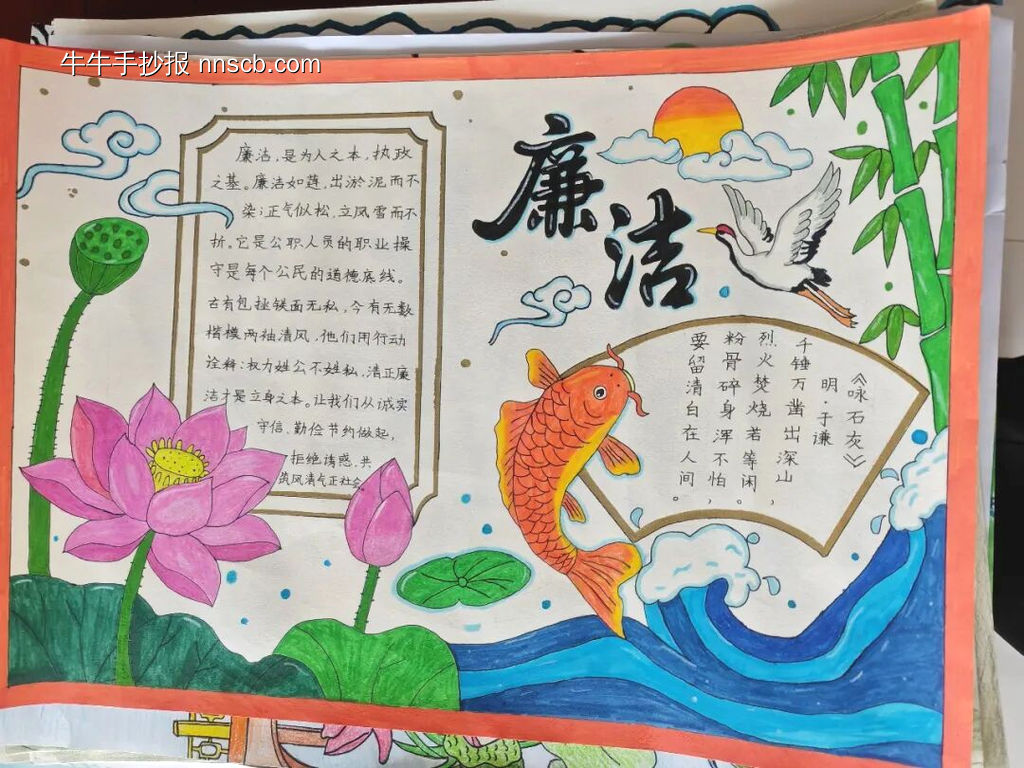 牛牛手抄报 nnscb.com
廉洁
廉洁,是为人之本,执政
之基。廉洁如莲,出淤泥而不
染;正气似松,立风雪而不
折。它是公职人员的职业操
守是每个公民的道德底线。
古有包拯铁面无私,今有无数
楷模两袖清风,他们用行动
诠释:权力姓公不姓私,清正廉
洁才是立身之本。让我们从诚实
守信、勤俭节约做起,
拒绝诱惑,共
筑风清气正社会
《咏石灰》
明·于谦
千锤万凿出深山,
烈火焚烧若等闲。
粉骨碎身浑不怕,
要留清白在人间。